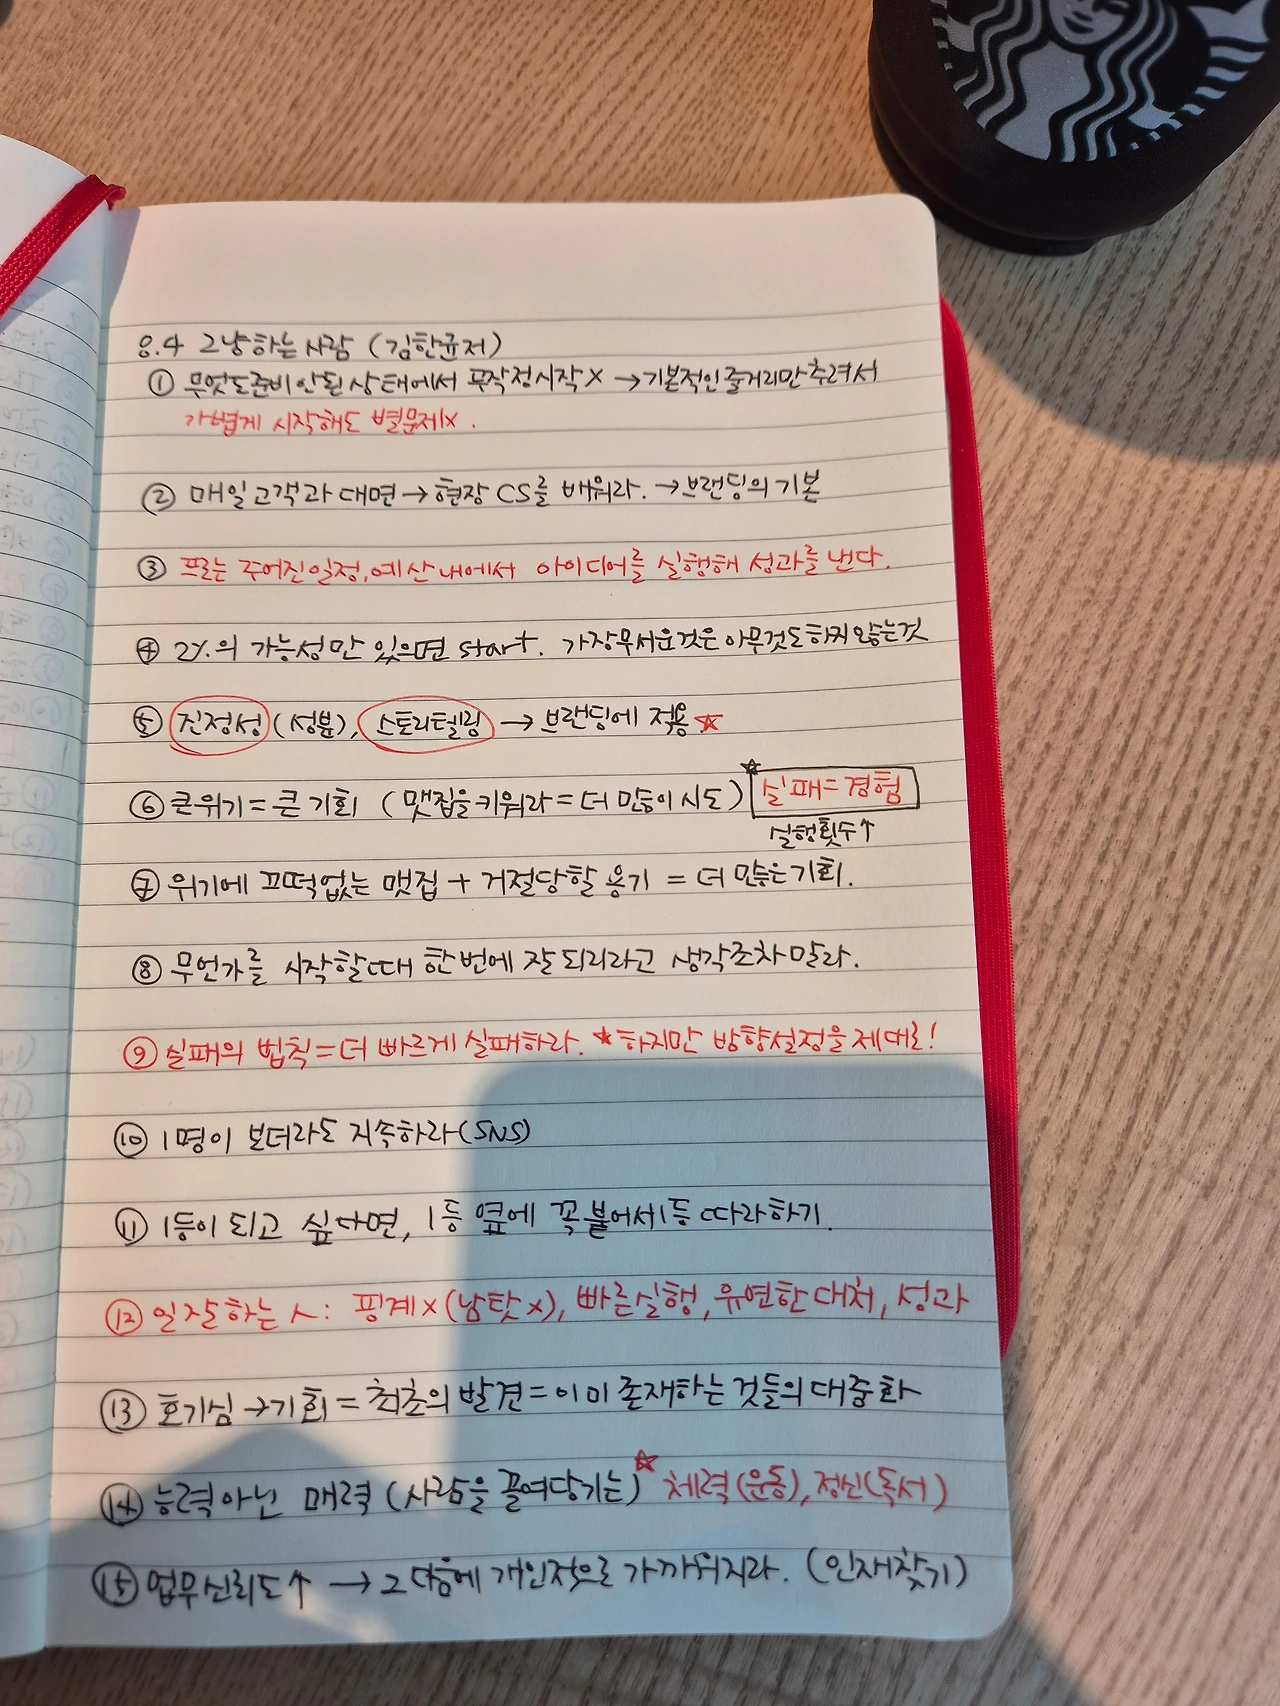 8.4 그냥하는 사람 (김한균저)
① 무엇도준비 안된 상태에서 무작정시작 X → 기본적인 줄거리만 추려서
가볍게 시작해도 별문제X.
② 매일 고객과 대면 → 현장 CS를 배워라. → 브랜딩의 기본
③ 프로는 주어진일정, 예산내에서 아이디어를 실행해 성과를 낸다.
④ 2%의 가능성만 있으면 start. 가장무서운것은 아무것도하지않는것
⑤ 진정성 (성분), 스토리텔링 → 브랜딩에 적용☆
⑥ 큰위기 = 큰 기회 (맷집을키워라 = 더 많이 시도) ☆ 실패=경험
실행횟수↑
⑦ 위기에 끄떡없는 맷집 + 거절당할 용기 = 더 많은기회.
⑧ 무언가를 시작할때 한번에 잘 되리라고 생각조차말라.
⑨ 실패의 법칙 = 더 빠르게 실패하라. ★하지만 방향설정을 제대로!
⑩ 1명이 보더라도 지속하라 (SNS)
⑪ 1등이 되고 싶다면, 1등 옆에 꼭 붙어서 1등 따라하기.
⑫ 일잘하는 人: 핑계X (남탓X), 빠른실행, 유연한대처, 성과
⑬ 호기심 → 기회 = 최초의 발견 = 이미 존재하는 것들의 대중화
⑭ 능력아닌 매력 (사람을 끌어당기는)☆ 체력(운동), 정신(독서)
⑮ 업무신뢰도↑ → 그 다음에 개인적으로 가까워지라. (인재찾기)